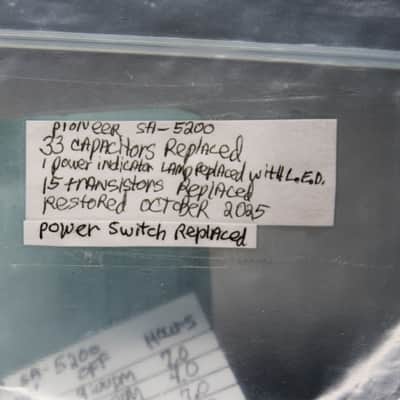 PIONEER SA-5200
33 CAPACITORS REPLACED
1 power indicator LAMP REPLACED WITH L.E.D.
15 TRANSISTORS REPLACED
RESTORED OCTOBER 2025
POWER SWITCH REPLACED
SA-5200 HOURS
OFF 70
40
70